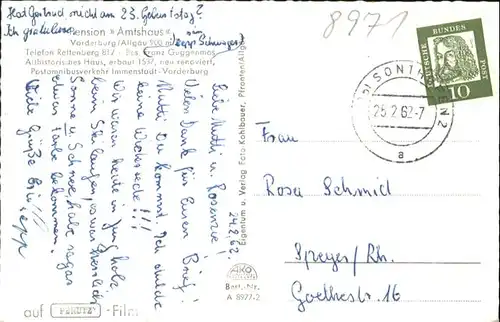 Hat Gertrud nicht am 23. Geburtstag?
Ich gratuliere
8971
Pension »Amtshaus«
Vorderburg/Allgäu 900 m
Sepp Schweiger
Telefon Rettenberg 812 - Bes. Franz Guggenmos
Althistorisches Haus, erbaut 1597, neu renoviert,
Postomnibusverkehr Immenstadt-Vorderburg
24.2.62
Liebe Mutti u. Rosenzie!
Vielen Dank für Euren Brief!
Mutti Du kommst. Ich dulde
keine Widerrede!!!
Wir waren heute in Jungholz
beim Skilaufen, es war herrlich
Sonne u. Schnee, habe sogar
etwas Farbe bekommen.
Viele Grüße
Sepp
auf PERUTZ-Film
Eigentum u. Verlag Foto Kohlbauer, Pfronten/Allgäu
Best.-Nr.
A 8977-2
DEUTSCHE BUNDESPOST
10
SONTHOFEN 2
25.2.62-7
a
Frau
Rosa Schmid
Speyer/Rh.
Goethestr. 16